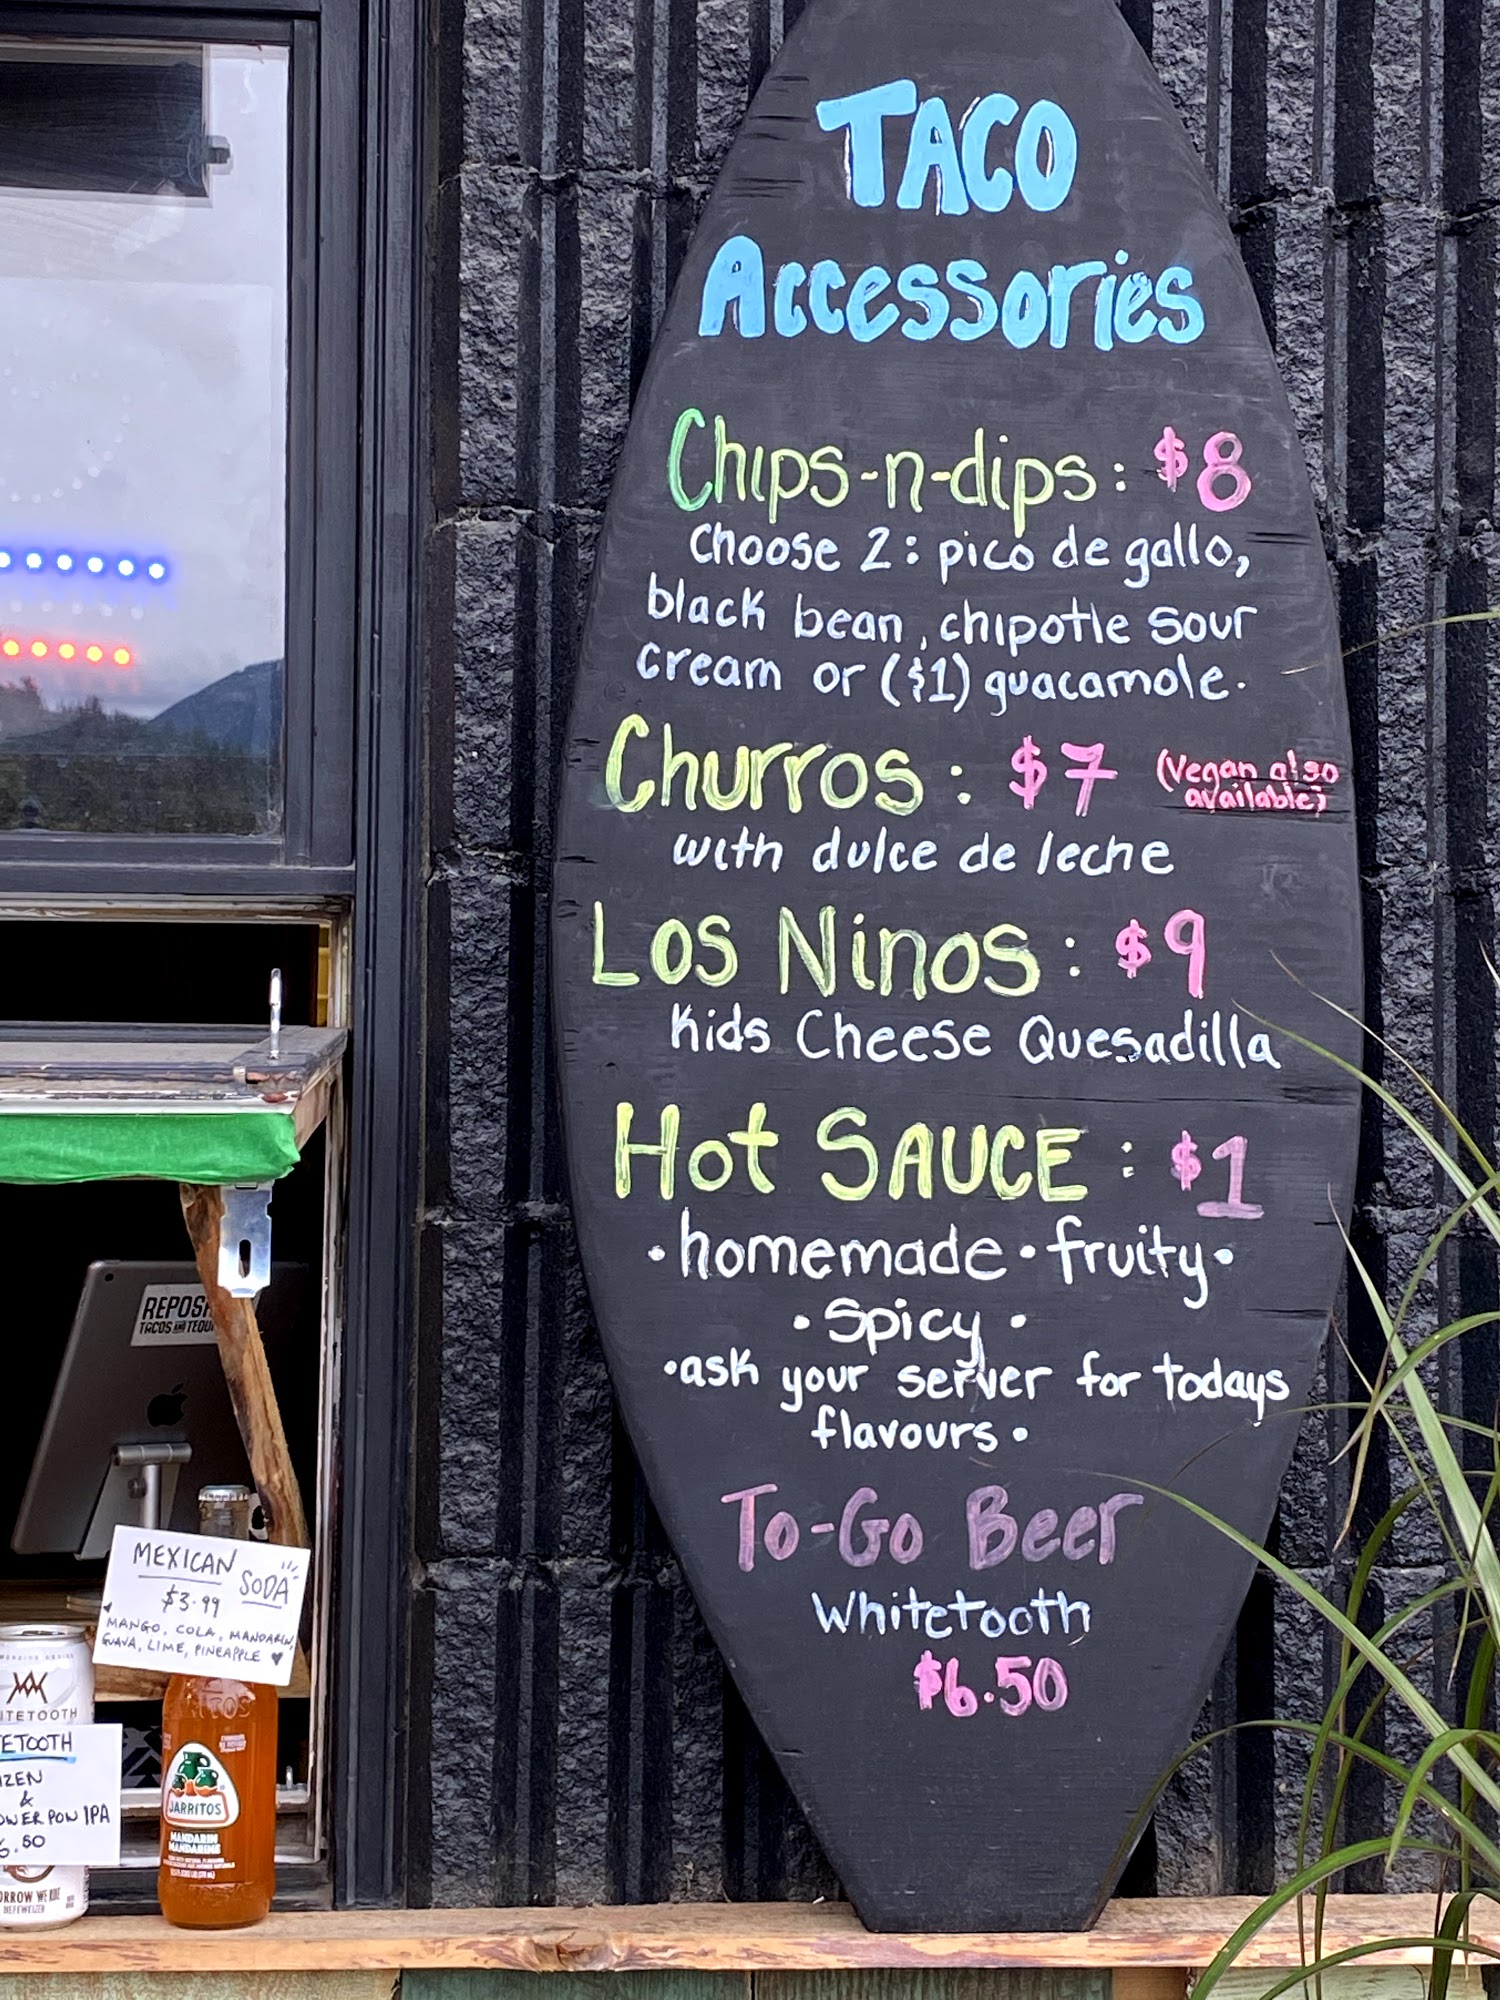 TACO
Accessories
Chips-n-dips: $8
Choose 2: pico de gallo,
black bean, chipotle sour
cream or ($1) guacamole.
Churros: $7
(Vegan also
available)
with dulce de leche
Los Ninos: $9
Kids Cheese Quesadilla
Hot SAUCE: $1
•homemade•fruity•
•Spicy•
•ask your server for todays
flavours•
To-Go Beer
Whitetooth
$6.50
TACOS AND
MEXICAN
SODA
$3.99
MANGO, COLA, MANDARIN,
GUAVA, LIME, PINEAPPLE
&
POW IPA
WE RIDE
HEFEWEIZEN
JARRITOS
MANDARIN
MANDARINE